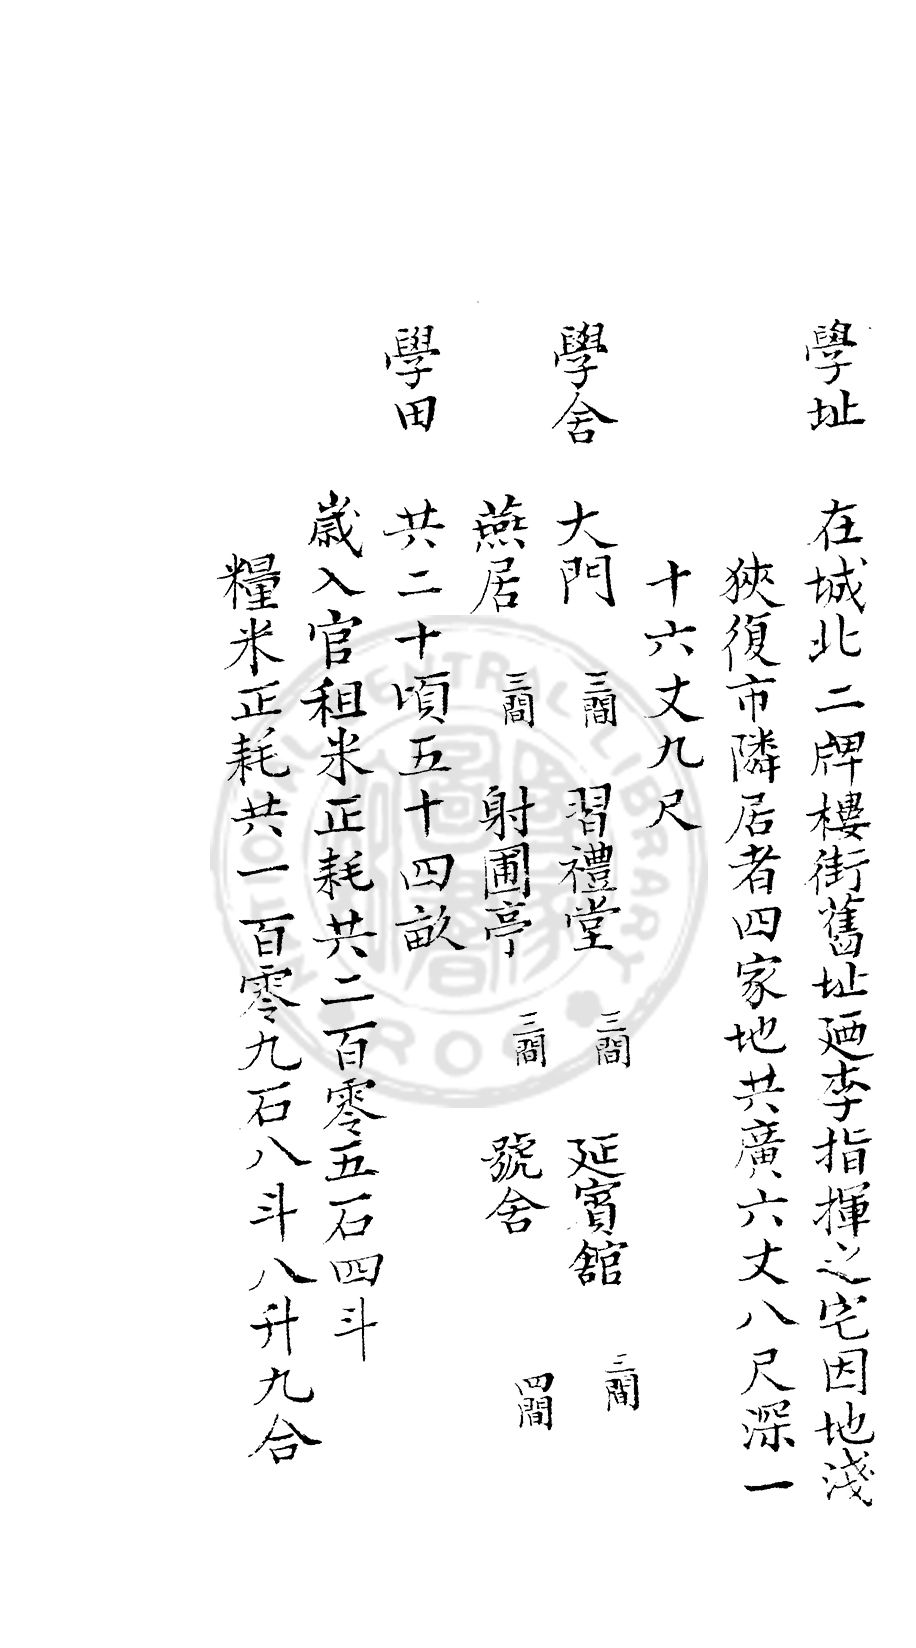 學址　在城北二牌樓街舊址廼李指揮之宅因地淺
狹復市隣居者四家地共廣六丈八尺深一
十六丈九尺
學舍　大門　三間　習禮堂　三間　延賓舘　三間
燕居　三間　射圃亭　三間　號舍　四間
學田　共二十頃五十四畝
歲入官租米正耗共二百零五石四斗
糧米正耗共一百零九石八斗八升九合
NATIONAL CENTRAL LIBRARY
ROC
國家圖書館